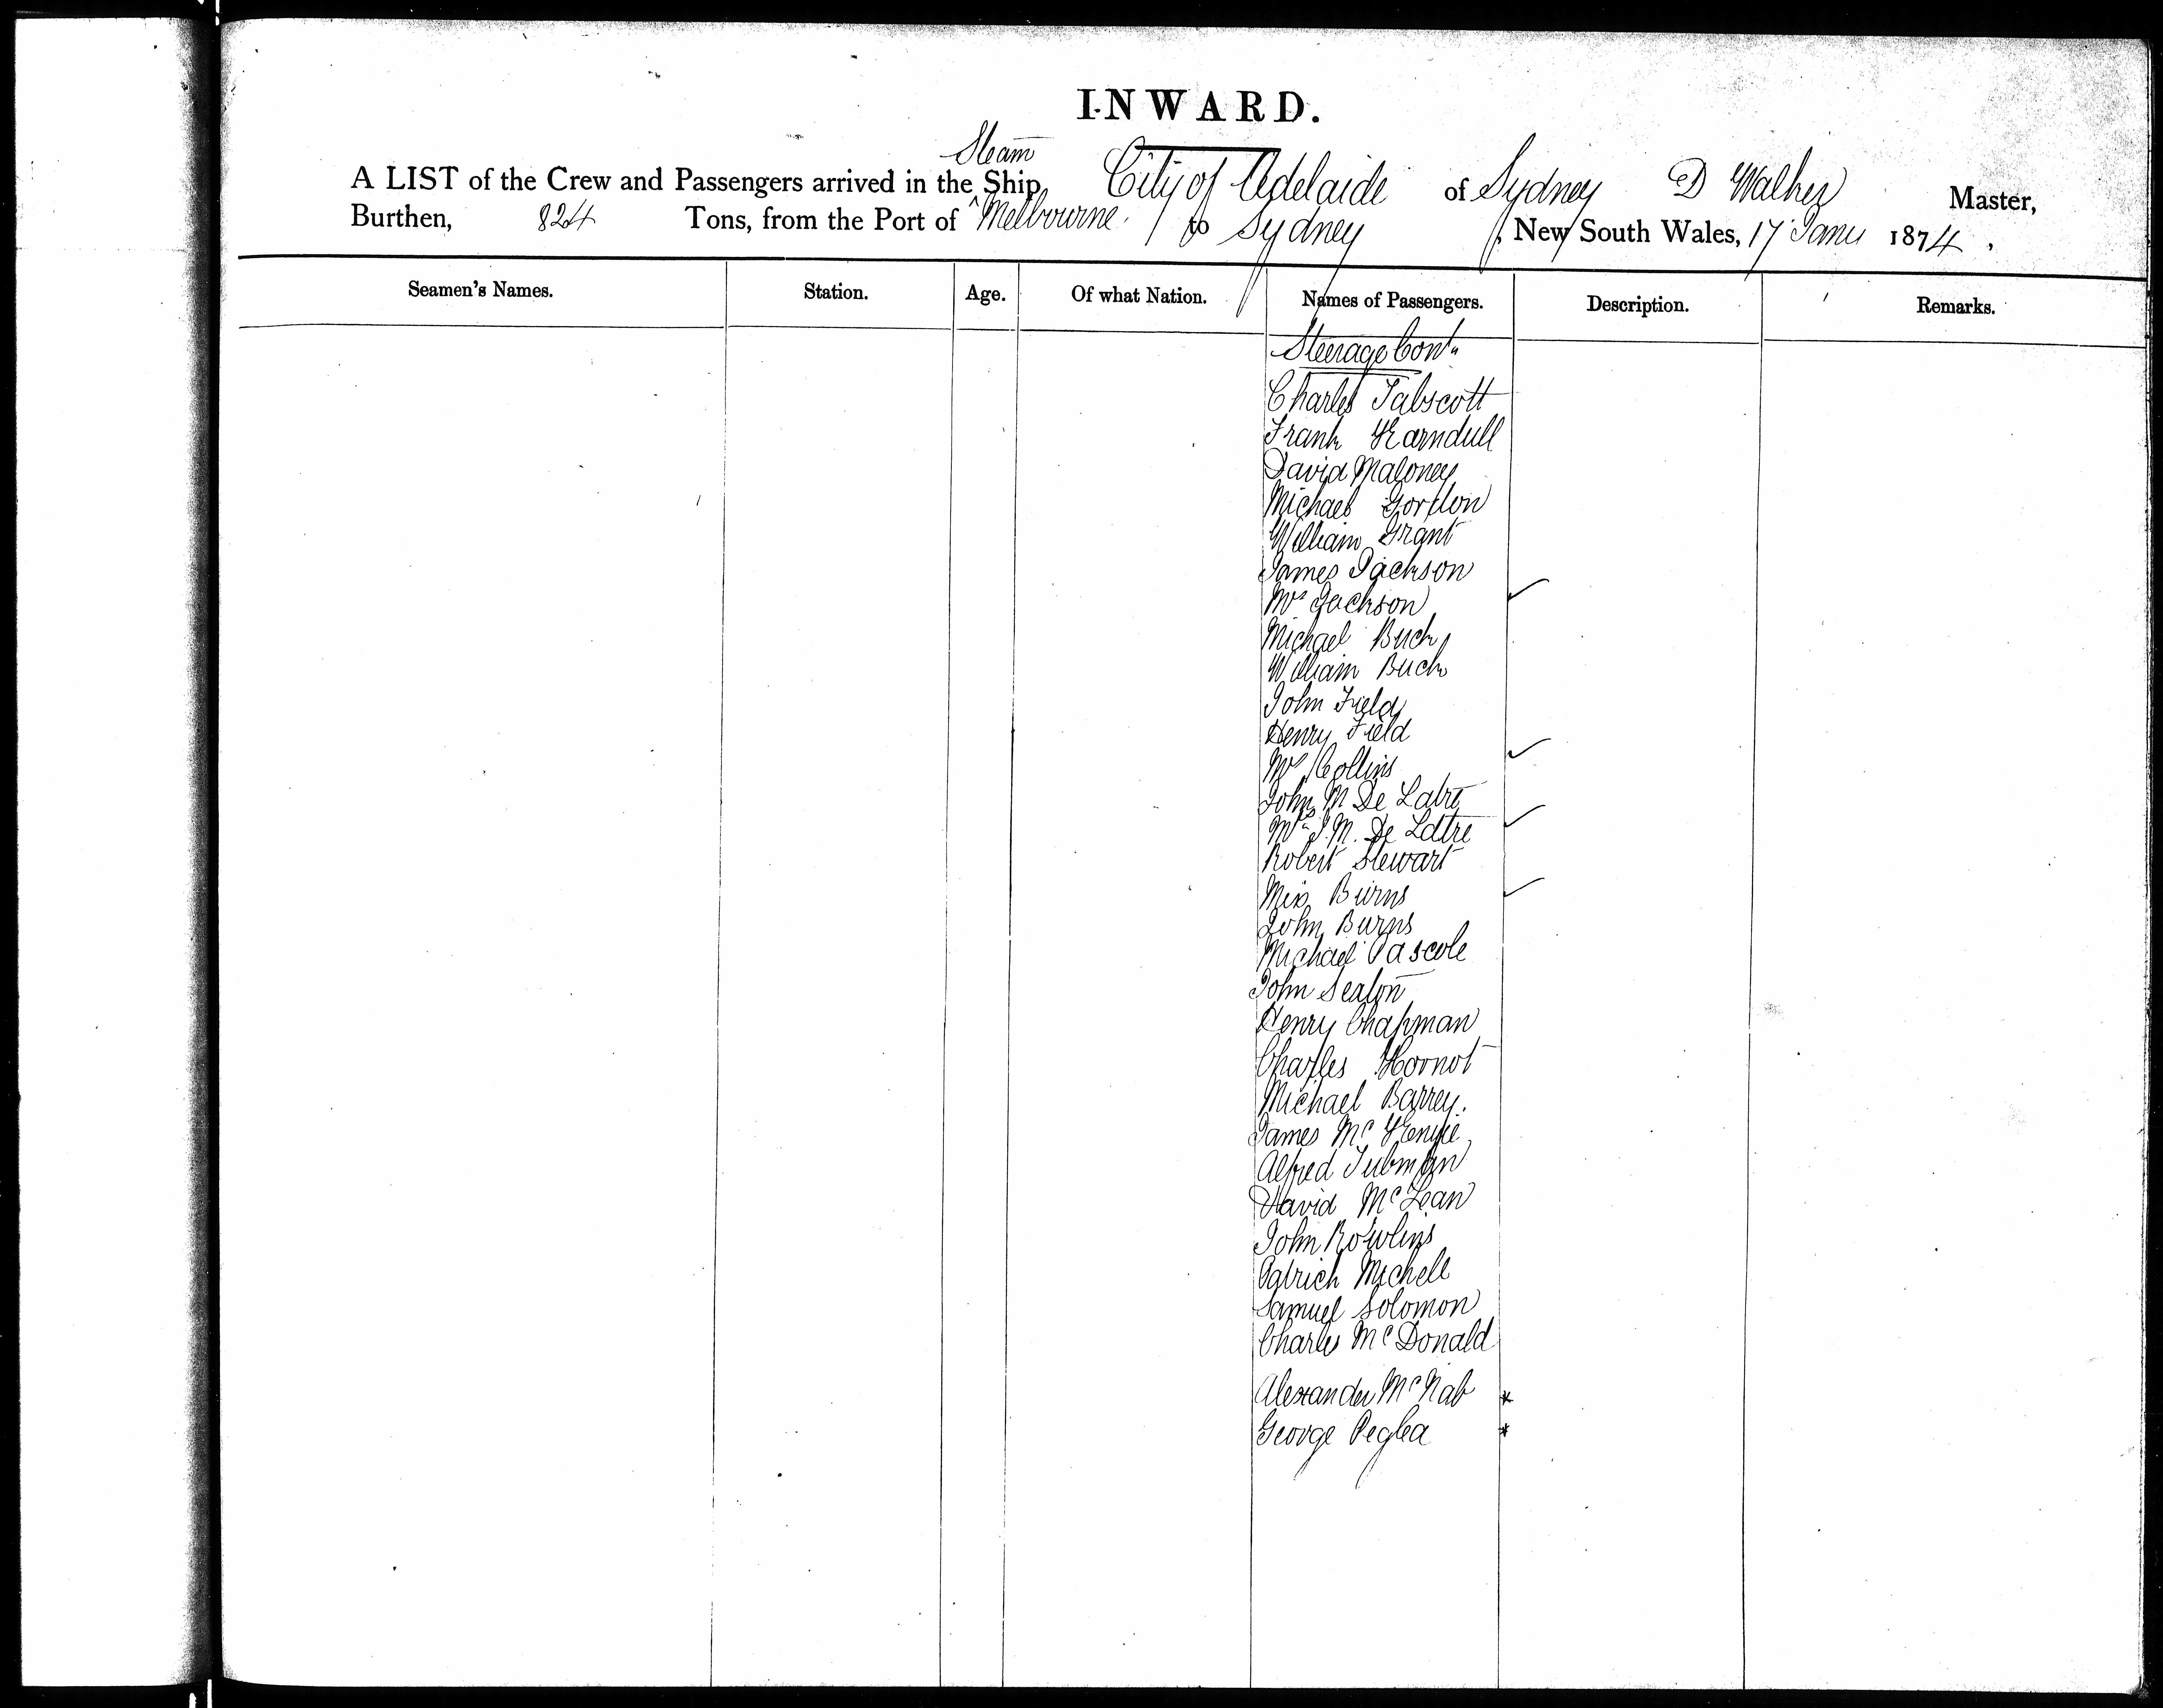 INWARD.
Steam
A LIST of the Crew and Passengers arrived in the ^ Ship City of Adelaide of Sydney D Walker Master,
Burthen, 824 Tons, from the Port of Melbourne to Sydney, New South Wales, 17 Jany 1874,
Seamen's Names. Station. Age. Of what Nation. Names of Passengers. Description. Remarks.
Steerage Cont.
Charles Talscott
Frank
David Maloney
Michael Gordon
William Grant
James Jackson
Mrs Jackson ✓
Michael Buck
William Buck
John Field
Henry Field
Mrs Collins ✓
John M De Latre
Mrs J. M. De Latre ✓
Robert Stewart
Miss Burns ✓
John Burns
Michael Pascole
John Seaton
Henry Chapman
Charles Hornot
Michael Barrey.
James McKenzie
Alfred Tubman
David McLean
John Rowlins
Patrick Michell
Samuel Solomon
Charles McDonald
Alexander McNab *
George Peglea *